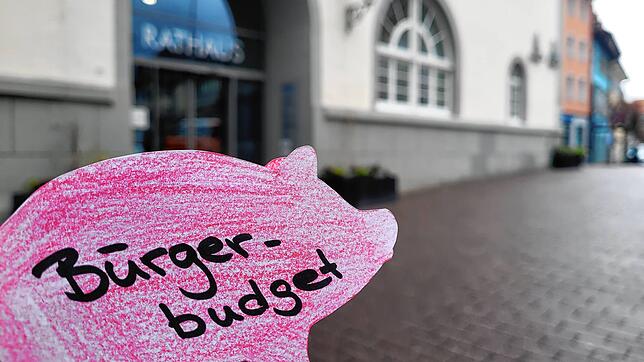 RATHAUS
Bürger-
budget